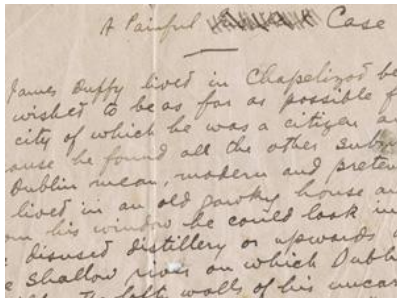 A Painful Case
James Duffy lived in Chapelizod be
wished to be as far as possible f
city of which he was a citizen an
ause he found all the other subur
Dublin mean, modern and preten
lived in an old gawky house an
om his window he could look in
disused distillery or upwards a
e shallow river on which Dubl
The left walls of his uncar